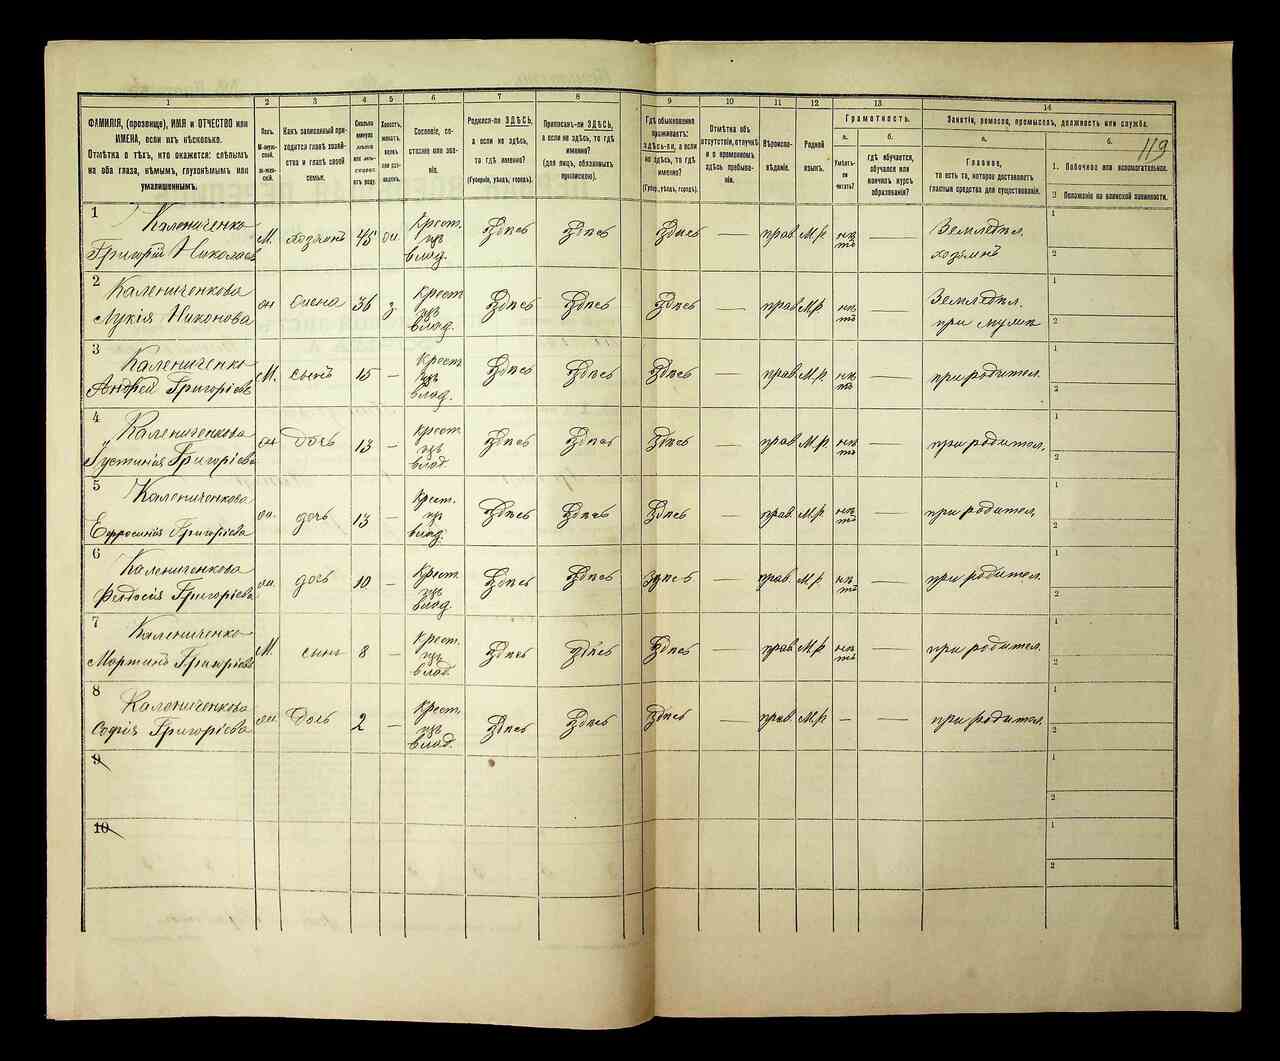 119
1 2 3 4 5 6 7 8 9 10 11 12 13 14
ФАМИЛІЯ, (прозвище), ИМЯ и ОТЧЕСТВО или
ИМЕНА, если ихъ нѣсколько.
Отмѣтка о тѣхъ, кто окажется: слѣпымъ
на оба глаза, нѣмымъ, глухонѣмымъ или
умалишеннымъ.
Полъ.
М-муж-
ской.
Ж-жен-
ской.
Какъ записанный при-
ходится главѣ хозяй-
ства и главѣ своей
семьи.
Сколько
минуло
лѣтъ
или мѣ-
сяцевъ
отъ роду.
Холостъ,
женатъ,
вдовъ
или раз-
веденъ.
Сословіе, со-
стояніе или зва-
ніе.
Родился-ли ЗДѢСЬ,
а если не здѣсь,
то гдѣ именно?
(Губернія, уѣздъ, городъ).
Приписанъ-ли ЗДѢСЬ,
а если не здѣсь, то гдѣ
именно?
(для лицъ, обязанныхъ
припискою).
Гдѣ обыкновенно
проживаетъ:
здѣсь-ли, а если
не здѣсь, то гдѣ
именно?
(Губер., уѣздъ, городъ).
Отмѣтка объ
отсутствіи, отлучкѣ
и о временномъ
здѣсь пребыва-
ніи.
Вѣроиспо-
вѣданіе.
Родной
языкъ.
Грамотность.
а.
Умѣетъ-
ли
читать?
б.
гдѣ обучается,
обучался или
кончилъ курсъ
образованія?
Занятіе, ремесло, промыселъ, должность или служба.
а.
Главное,
то есть то, которое доставляетъ
главныя средства для существованія.
б.
1. Побочное или вспомогательное.
2 Положеніе по воинской повинности.
1 Калениченко
Григорій Николаевъ М. хозяинъ 45 Крест. изъ влад. Здѣсь Здѣсь Здѣсь — прав. М.р. нѣтъ — Земледѣл. хозяинъ 1 2
2 Калениченкова
Лукія Никонова жена 36 з. Крест. изъ влад. Здѣсь Здѣсь Здѣсь — прав. М.р. нѣтъ — Земледѣл. при мужѣ 1 2
3 Калениченко
Андрей Григоріевъ М. сынъ 15 — Крест. изъ влад. Здѣсь Здѣсь Здѣсь — прав. М.р. нѣтъ — при родител. 1 2
4 Калениченкова
Густинія Григоріева дочь 13 — Крест. изъ влад. Здѣсь Здѣсь Здѣсь — прав. М.р. нѣтъ — при родител. 1 2
5 Калениченкова
Ефросинія Григоріева дочь 13 — Крест. изъ влад. Здѣсь Здѣсь Здѣсь — прав. М.р. нѣтъ — при родител. 1 2
6 Калениченкова
Феодосія Григоріева дочь 10 — Крест. изъ влад. Здѣсь Здѣсь Здѣсь — прав. М.р. нѣтъ — при родител. 1 2
7 Калениченко
Мартинъ Григоріевъ М. сынъ 8 — Крест. изъ влад. Здѣсь Здѣсь Здѣсь — прав. М.р. нѣтъ — при родител. 1 2
8 Калениченкова
Софія Григоріева дочь 2 — Крест. изъ влад. Здѣсь Здѣсь Здѣсь — прав. М.р. - — при родител. 1 2
9 1 2
10 1 2